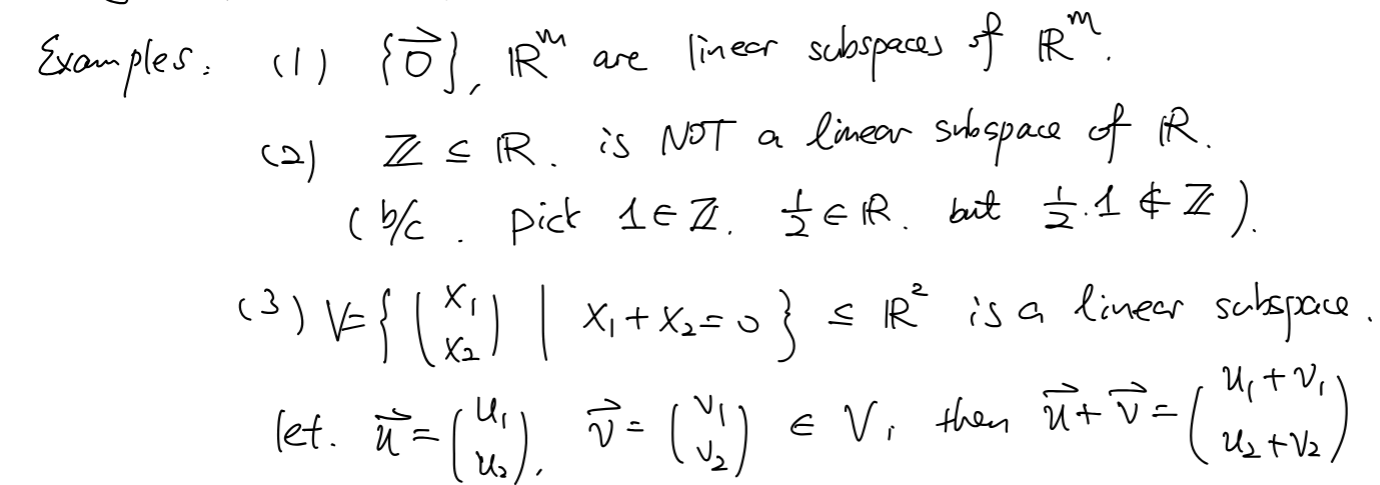 Examples: (1) {0⃗}, ℝᵐ are linear subspaces of ℝᵐ.
(2) ℤ ⊆ ℝ. is NOT a linear subspace of ℝ.
(b/c. pick 1 ∈ ℤ. ½ ∈ ℝ. but ½·1 ∉ ℤ).
(3) V = { (x₁ x₂) | x₁ + x₂ = 0 } ⊆ ℝ² is a linear subspace.
let. u⃗ = (u₁ u₂), v⃗ = (v₁ v₂) ∈ V, then u⃗ + v⃗ = (u₁ + v₁ u₂ + v₂)